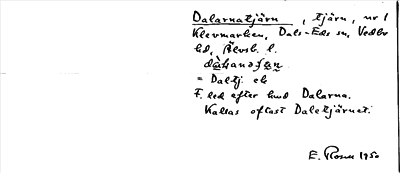 Dalarnatjärn, tjärn, nr 1
Klevmarken, Dals-Eds sn, Vedbo
hd, Älvsb. l.
= Daltj. ek
F. led efter hmd Dalarna.
Kallas oftast Daletjärnet.
E. Rosen 1950